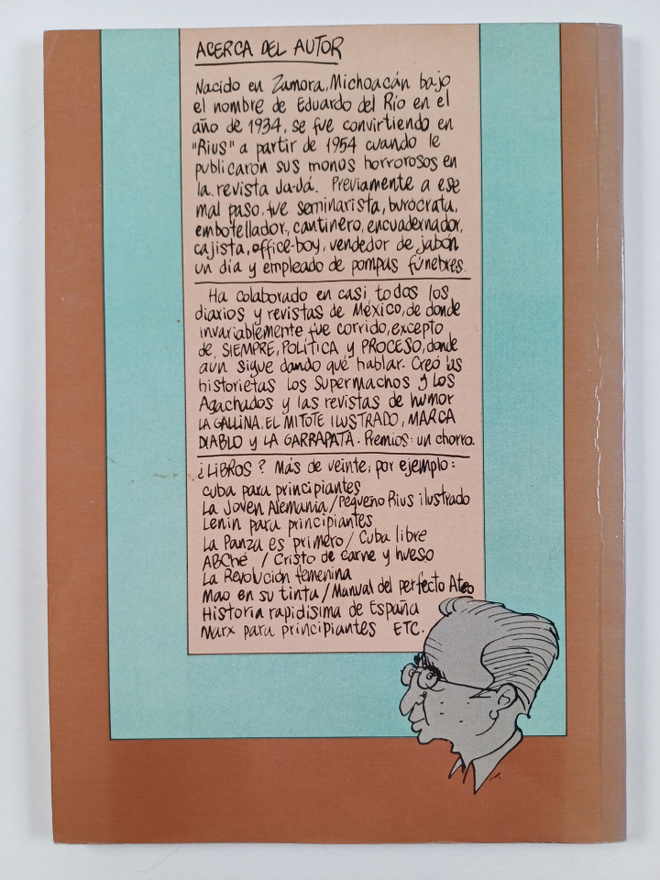 ACERCA DEL AUTOR
Nacido en Zamora, Michoacán bajo
el nombre de Eduardo del Río en el
año de 1934, se fue convirtiendo en
"Rius" a partir de 1954 cuando le
publicaron sus monos horrorosos en
la revista Ja-Já. Previamente a ese
mal paso, fue seminarista, burócrata,
embotellador, cantinero, encuadernador,
cajista, office-boy, vendedor de jabón
un día y empleado de pompas fúnebres.
Ha colaborado en casi todos los
diarios y revistas de México, de donde
invariablemente fue corrido, excepto
de SIEMPRE, POLÍTICA y PROCESO, donde
aun sigue dando qué hablar. Creó las
historietas Los Supermachos y Los
Agachados y las revistas de humor
LA GALLINA, EL MITOTE ILUSTRADO, MARCA
DIABLO y LA GARRAPATA. Premios: un chorro.
¿LIBROS? Más de veinte; por ejemplo:
Cuba para principiantes
La Joven Alemania / Pequeño Rius ilustrado
Lenin para principiantes
La Panza es primero / Cuba libre
ABChé / Cristo de carne y hueso
La Revolución femenina
Mao en su tinta / Manual del perfecto Ateo
Historia rapidísima de España
Marx para principiantes ETC.